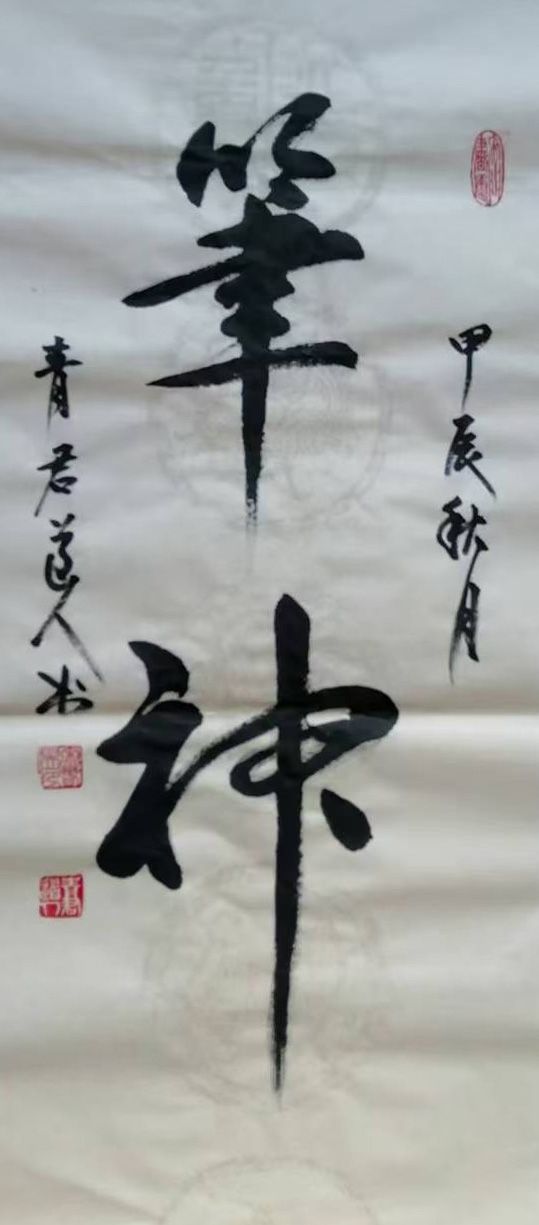 甲辰秋月
筆神
青君道人书